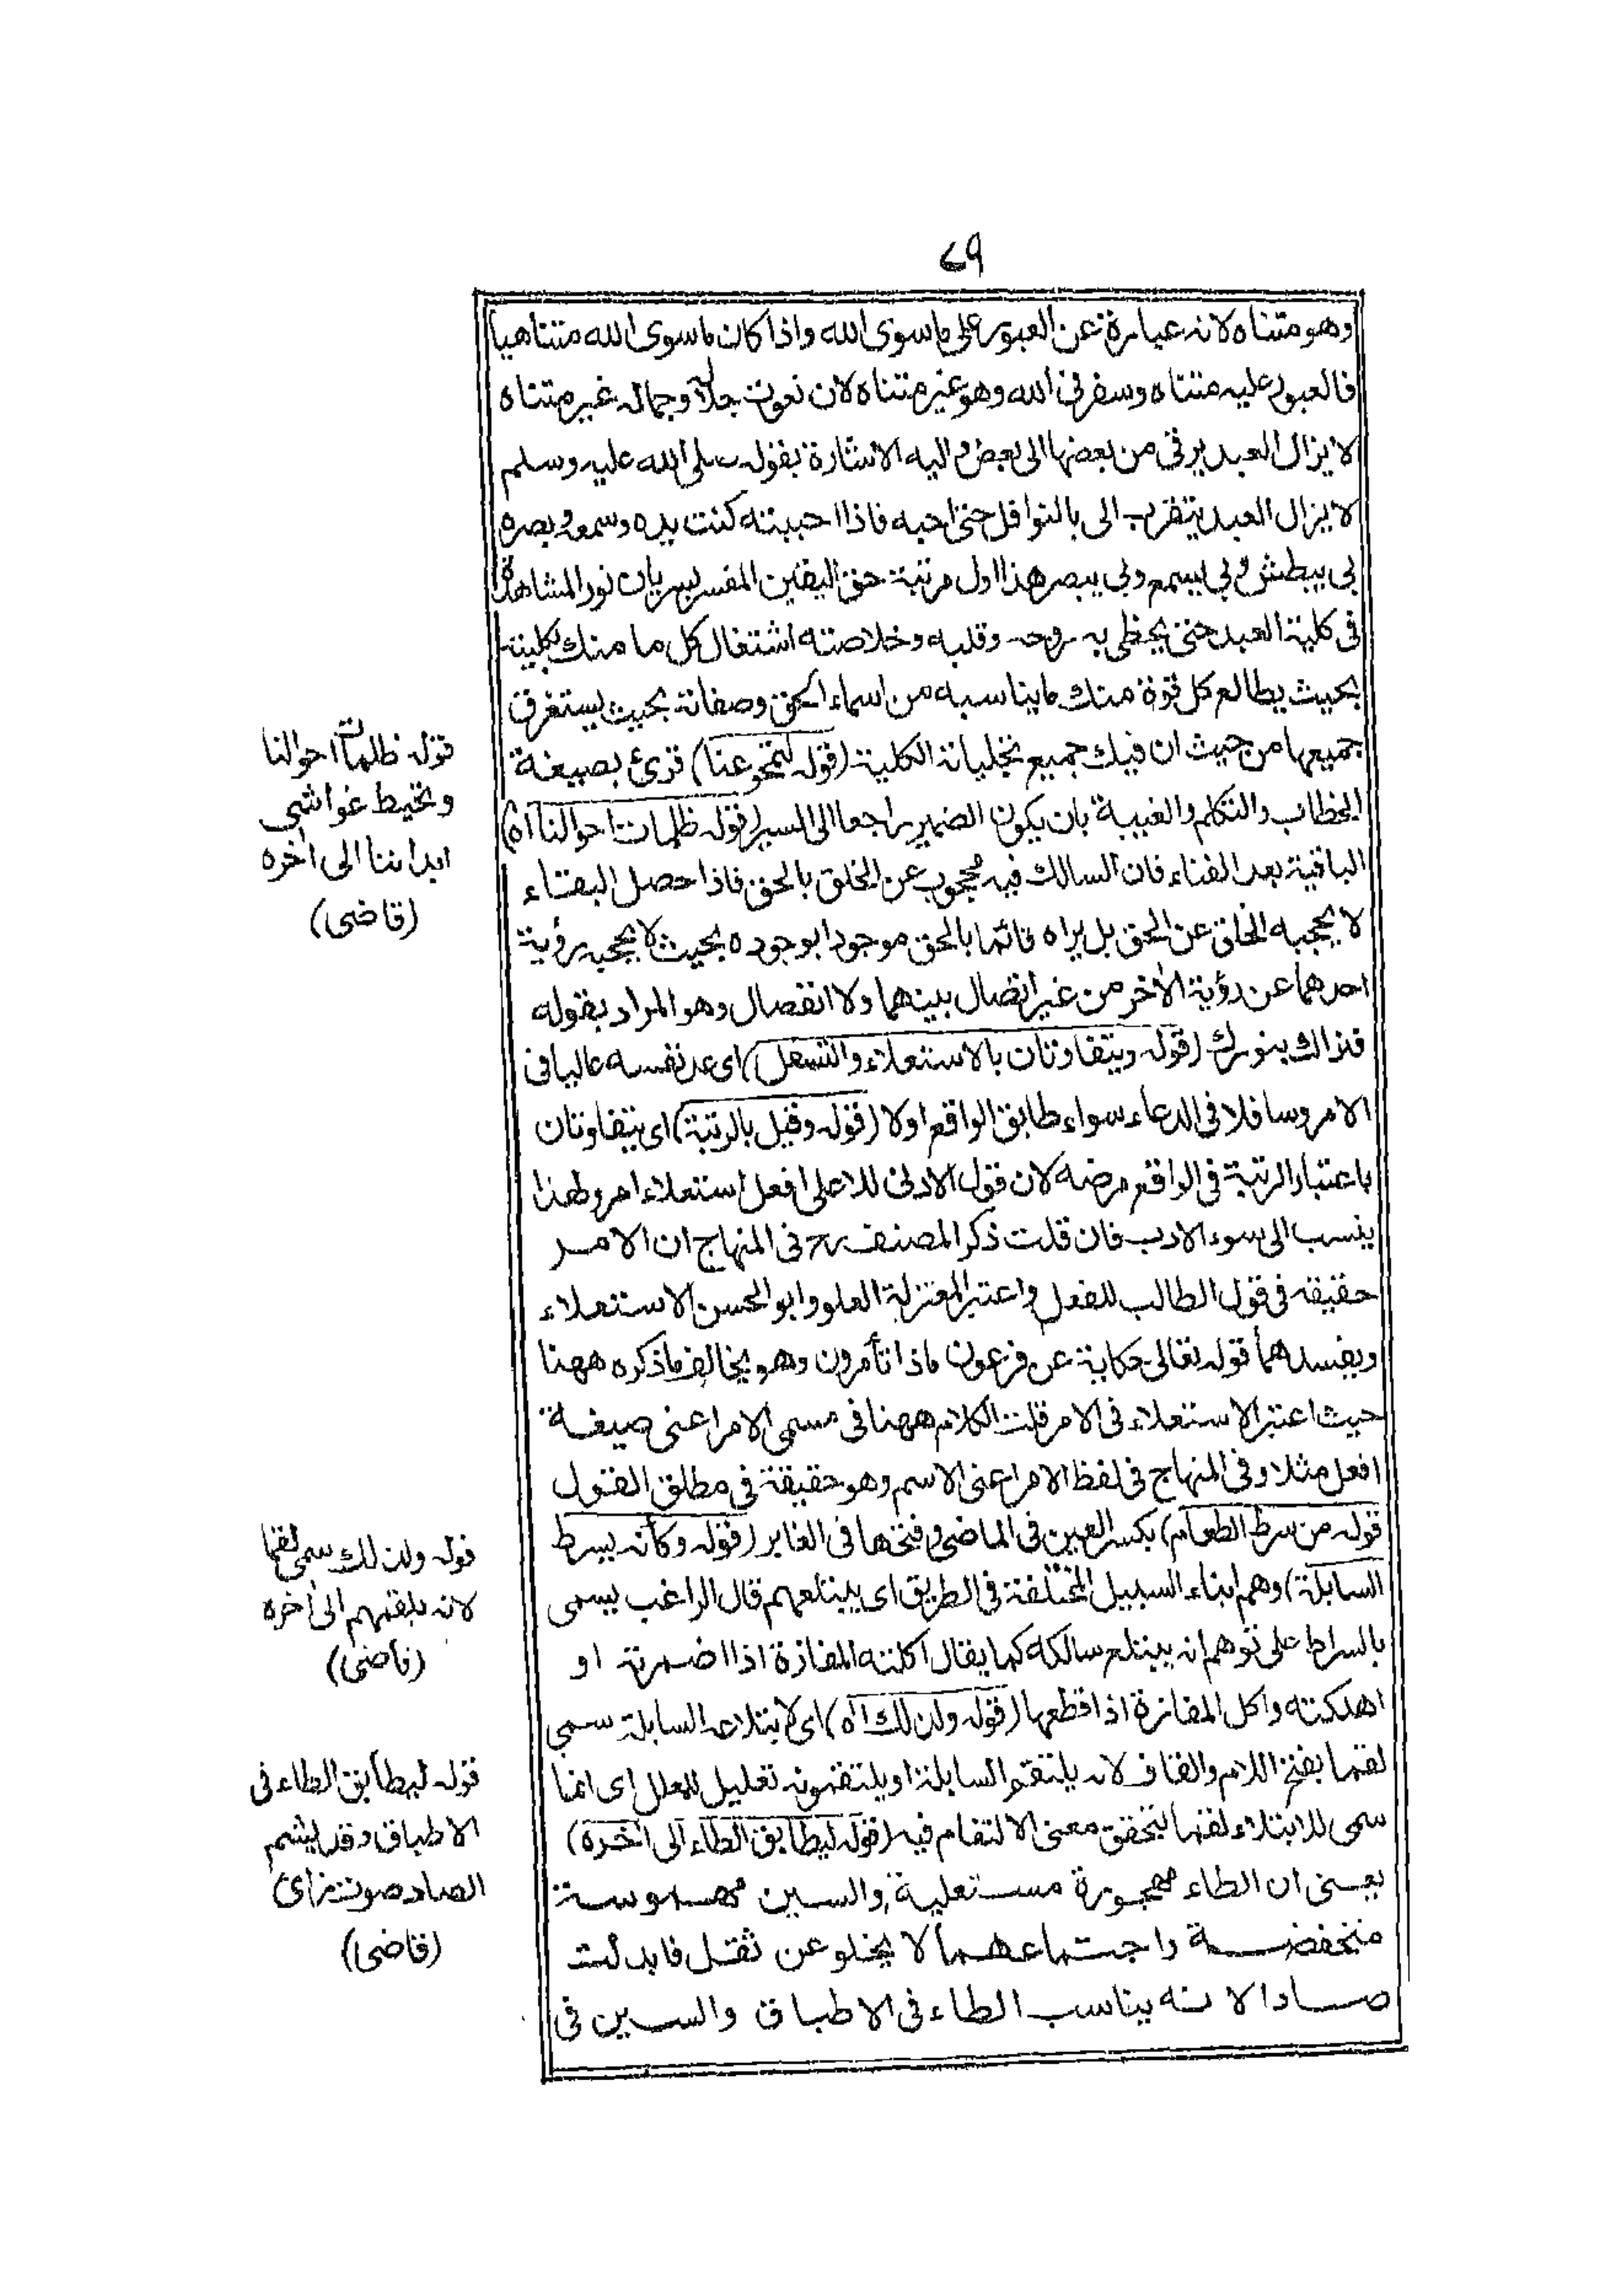 ٧٩
وهو متناه لانه عبارة عن العبور على ماسوى الله واذا كان ماسوى الله متناهيا
فالعبور عليه متناه وسفر فى الله وهو غير متناه لان نعوت جلاله وجماله غير متناه
لا يزال العبد يرقى من بعضها الى بعض و اليه الاشارة بقوله صلى الله عليه وسلم
لا يزال العبد يتقرب الى بالنوافل حتى احبه فاذا احببته كنت يده وسمعه وبصره
بى يبطش وبى يسمع وبى يبصر هذا اول مرتبة حق اليقين المفسر بسريان نور المشاهدة
فى كلية العبد حتى يحظى به روحه وقلبه وخلاصته اشتغال كل ما منك بكلية
بحيث يطالع كل قوة منك مايناسبه من اسماء الحق وصفاته بحيث يستغرق
جميعها من حيث ان فيك جميع تجلياته الكلية (قوله لتمحو عنا) قرئ بصيغة
الخطاب والتكلم والغيبة بان يكون الضمير راجعا الى السير (قوله ظلمات احوالنا اه)
الباقية بعد الفناء فان السالك فيه محجوب عن الخلق بالحق فاذا حصل البقاء
لا يحجبه الخلق عن الحق بل يراه قائما بالحق موجودا بوجوده بحيث لا يحجبه رؤية
احدهما عن رؤية الآخر من غير اتصال بينهما ولا انفصال وهو المراد بقوله
فنراك بنورك (قوله ويتفاوتان بالاستعلاء والتسفل) اى عد نفسه عاليا فى
الامر وسافلا فى الدعاء سواء طابق الواقع اولا (قوله وقيل بالرتبة) اى يتفاوتان
باعتبار الرتبة فى الواقع مرضه لان قول الادنى للاعلى افعل استعلاء امر ولهذا
ينسب الى سوء الادب فان قلت ذكر المصنف رح فى المنهاج ان الامر
حقيقه فى قول الطالب للفعل واعتبر المعتزلة العلو وابو الحسن الاستعلاء
ويفسدهما قوله تعالى حكاية عن فرعون ماذا تأمرون وهو يخالف ماذكره ههنا
حيث اعتبر الاستعلاء فى الامر قلت الكلام ههنا فى مسمى الامر اعنى صيغة
افعل مثلا وفى المنهاج فى لفظ الامر اعنى الاسم وهو حقيقة فى مطلق القول
قوله من سرط الطعام) بكسر العين فى الماضى وفتحها فى الغابر (قوله وكأنه يسرط
السابلة) وهم ابناء السبيل المختلفة فى الطريق اى يبتلعهم قال الراغب يسمى
بالسراط على توهم انه يبتلع سالكه كما يقال اكلته المفازة اذا اضمرته او
اهلكته واكل المفازة اذا قطعها (قوله ولذلك اه) اى لابتلاعه السابلة سمى
لقما بفتح اللام والقاف لانه يلتقم السابلة او يلتقمونه تعليل للمعلل اى انما
سمى للابتلاع لقما ليتحقق معنى الالتقام فيه (قوله ليطابق الطاء الى آخره)
يعنى ان الطاء مجهورة مستعلية والسين مهموسة
منخفضة واجتماعهما لا يخلو عن ثقل فابدلت
صادا لانه يناسب الطاء فى الاطباق والسين فى
قوله ظلمات احوالنا
وتخيط غواشى
ابداننا الى آخره
(قاضى)
قوله ولذلك سمى لقما
لانه يلقمهم الى آخره
(قاضى)
قوله ليطابق الطاء فى
الاطباق وقد يشم
الصاد صوت زاى
(قاضى)